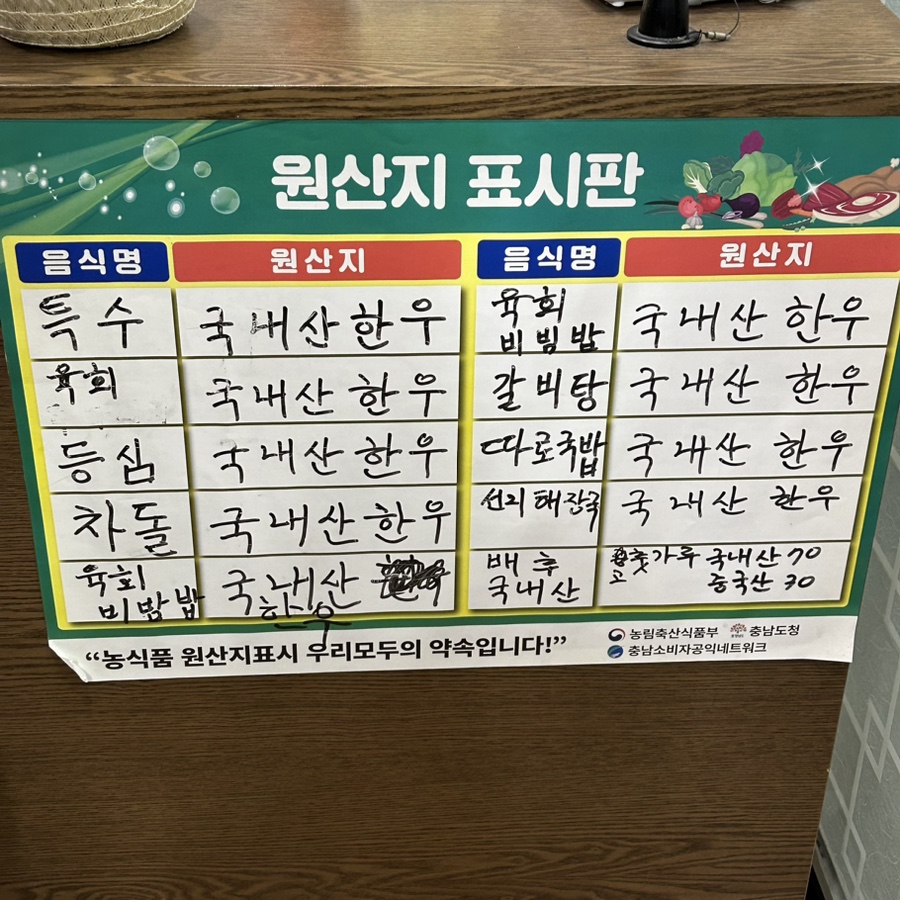 원산지 표시판
음식명 원산지 음식명 원산지
특수 국내산 한우
육회 국내산 한우
등심 국내산 한우
차돌 국내산 한우
육회
비밤밥
국내산
한우
육회
비빔밥
국내산 한우
갈비탕 국내산 한우
따로국밥 국내산 한우
선지해장국 국내산 한우
배추
국내산
고춧가루 국내산 70
중국산 30
“농식품 원산지표시 우리모두의 약속입니다!”
농림축산식품부 충남도청
충남소비자공익네트워크